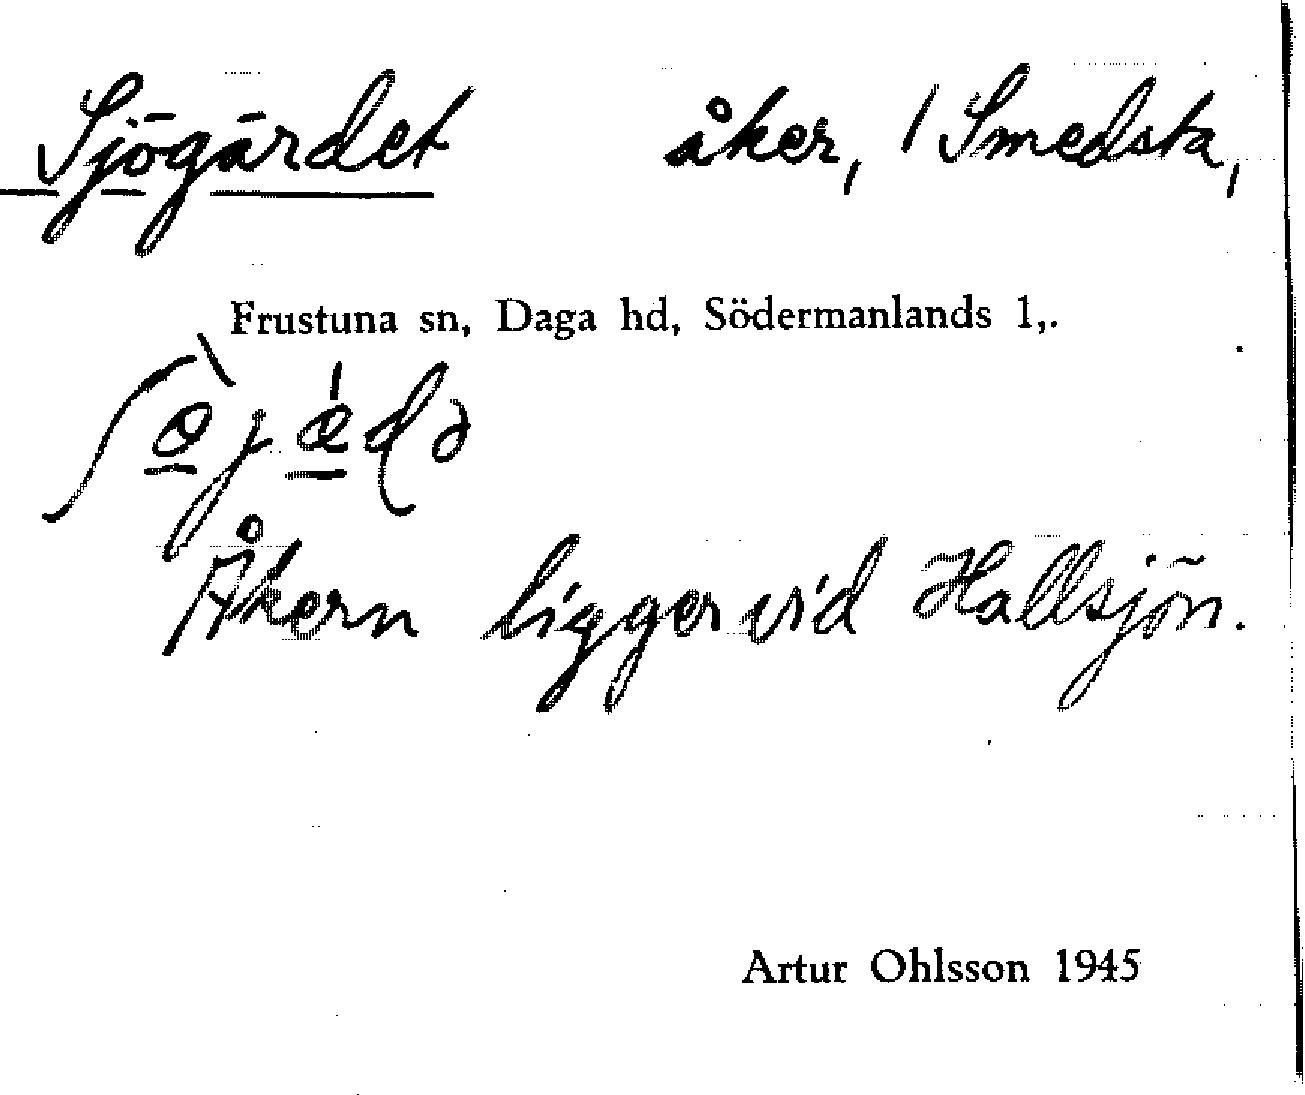 Sjögärdet åker, / Smedsta,
Frustuna sn, Daga hd, Södermanlands l,.
Åkern ligger vid Hallsjön.
Artur Ohlsson 1945